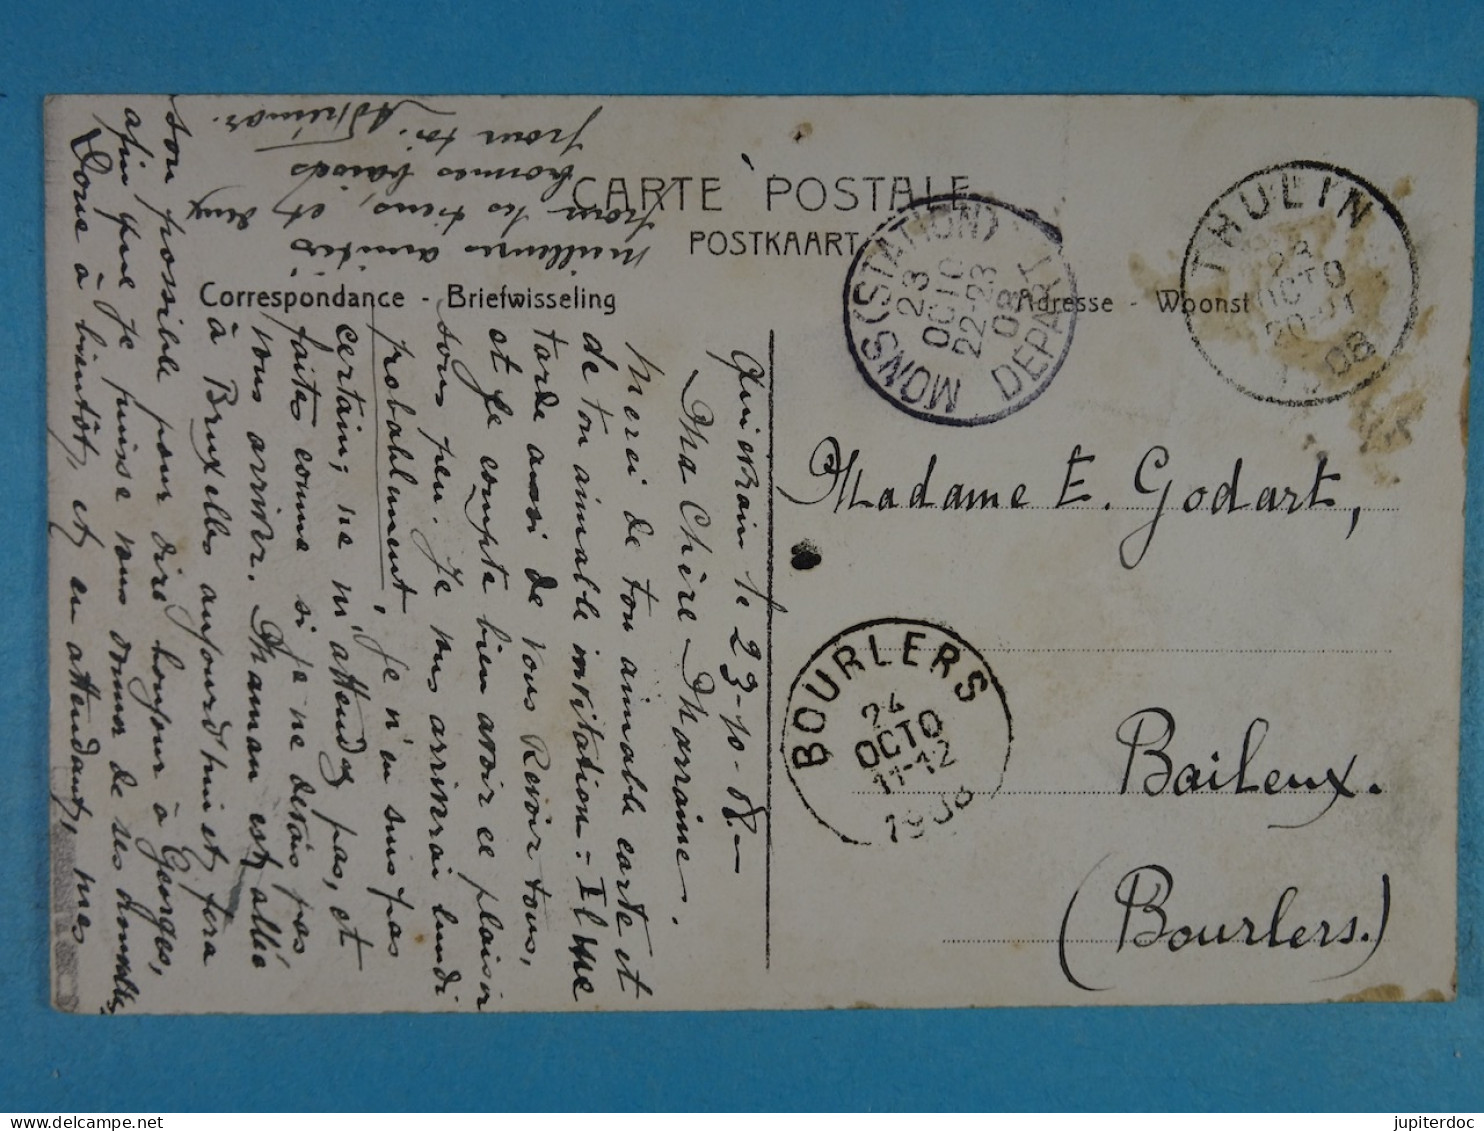 CARTE POSTALE
POSTKAART
Correspondance - Briefwisseling
Adresse - Woonst
MONS (STATION)
23
OCTO
22-23
08
DEPART
THULIN
23
OCTO
20-21
1908
Madame E. Godart,
Baileux.
(Bourlers.)
BOURLERS
24
OCTO
11-12
1908
Quiévrain le 23-10-08.-
Ma Chère Marraine.
Merci de ton aimable carte et
de ton aimable invitation.- Il me
tarde aussi de vous Revoir tous,
et Je compte bien avoir ce plaisir
sous peu. Je vous arriverai lundi
probablement, Je n'en suis pas
certain; ne m'attendez pas, et
faites comme si je ne devais pas
vous arriver. Maman est allée
à Bruxelles aujourd'hui et fera
son possible pour dire bonjour à Georges,
afin que Je puisse vous donner de ses nouvelles,
Donc à bientôt, et en attendant, mes
meilleures amitiés
pour les tiens, et deux
bonnes baises
pour toi.
jupiterdoc